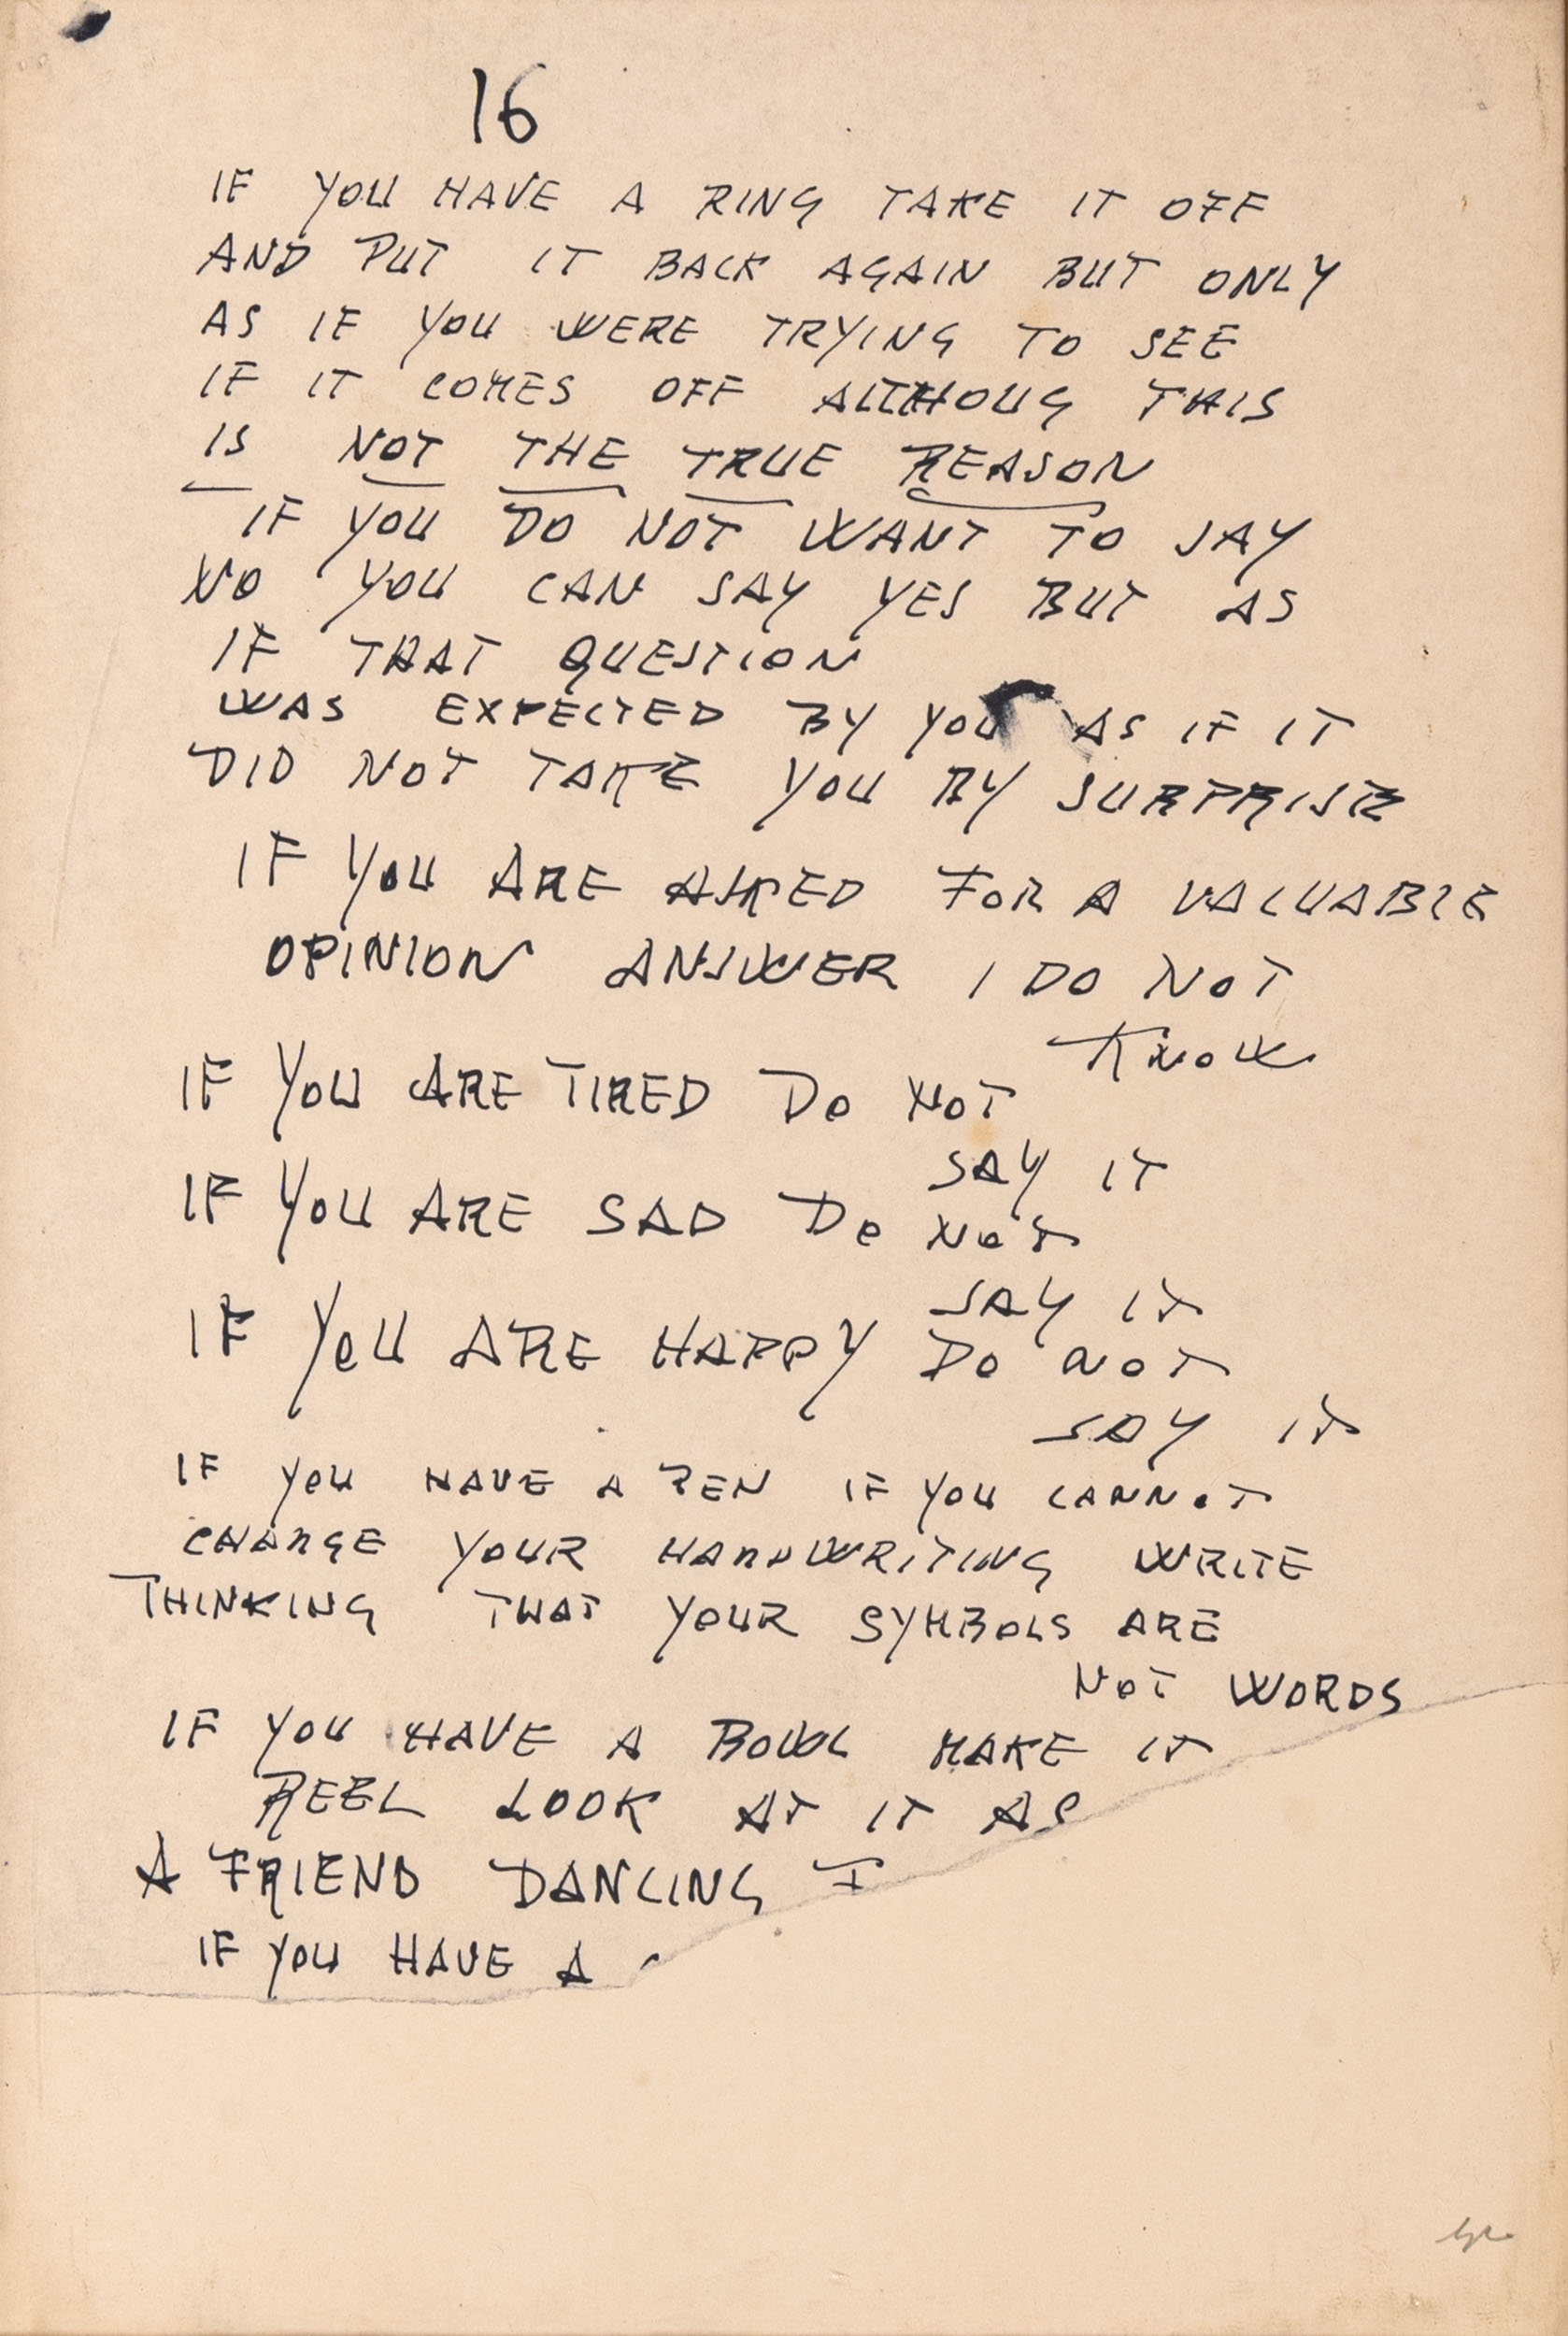 16
IF YOU HAVE A RING TAKE IT OFF
AND PUT IT BACK AGAIN BUT ONLY
AS IF YOU WERE TRYING TO SEE
IF IT COMES OFF ALTHOUG THIS
IS NOT THE TRUE REASON
IF YOU DO NOT WANT TO SAY
NO YOU CAN SAY YES BUT AS
IF THAT QUESTION
WAS EXPECTED BY YOU AS IF IT
DID NOT TAKE YOU BY SURPRISE
IF YOU ARE ASKED FOR A VALUABLE
OPINION ANSWER I DO NOT
KNOW
IF YOU ARE TIRED DO NOT
SAY IT
IF YOU ARE SAD DO NOT
SAY IT
IF YOU ARE HAPPY DO NOT
SAY IT
IF YOU HAVE A PEN IF YOU CANNOT
CHANGE YOUR HANDWRITING WRITE
THINKING THAT YOUR SYMBOLS ARE
NOT WORDS
IF YOU HAVE A BOWL MAKE IT
REEL LOOK AT IT AS
A FRIEND DANCING
IF YOU HAVE A